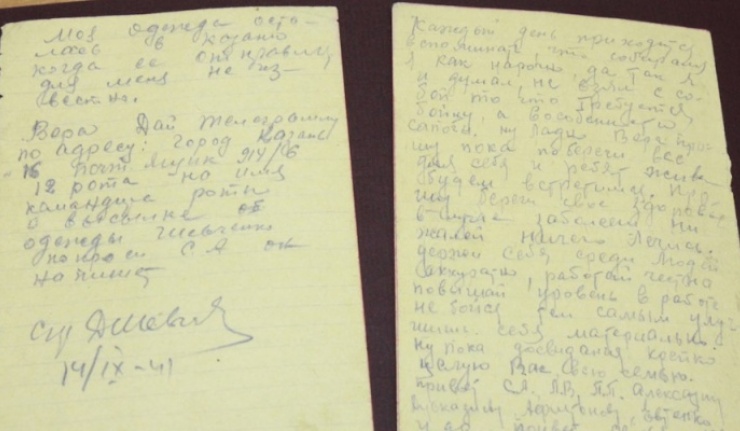 Моя одежда оста-
лась в Казане
когда ее отправят
для меня не из-
вестно.
Вера Дай телеграмму
по адресу: город Казань
"15 почт. Ящик 914/6
12 рота на имя
командира роты
о высылке
одежды Шевченко
попроси С А он
напишет
14/IX-41
Каждый день приходится
вспоминать, что собирался
я как нарочно, да так я
и думал, не взял с со-
бой то что требуется
бойцу, а в особенности
сапоги. Ну ладно Вера про-
шу пока побереги все
для себя и ребят живы
будем встретимся. Про-
шу береги свое здоровье
в случае заболееш ни
жалей ничего лечись.
держи себя среди людей
аккуратно, работай честно
повышай уровень в работе
не бойся тем самым улуч
шиш себя материально.
ну пока досвидания крепко
целую Вас всю семью.
привет СА, ЛВ, П.П. Александру